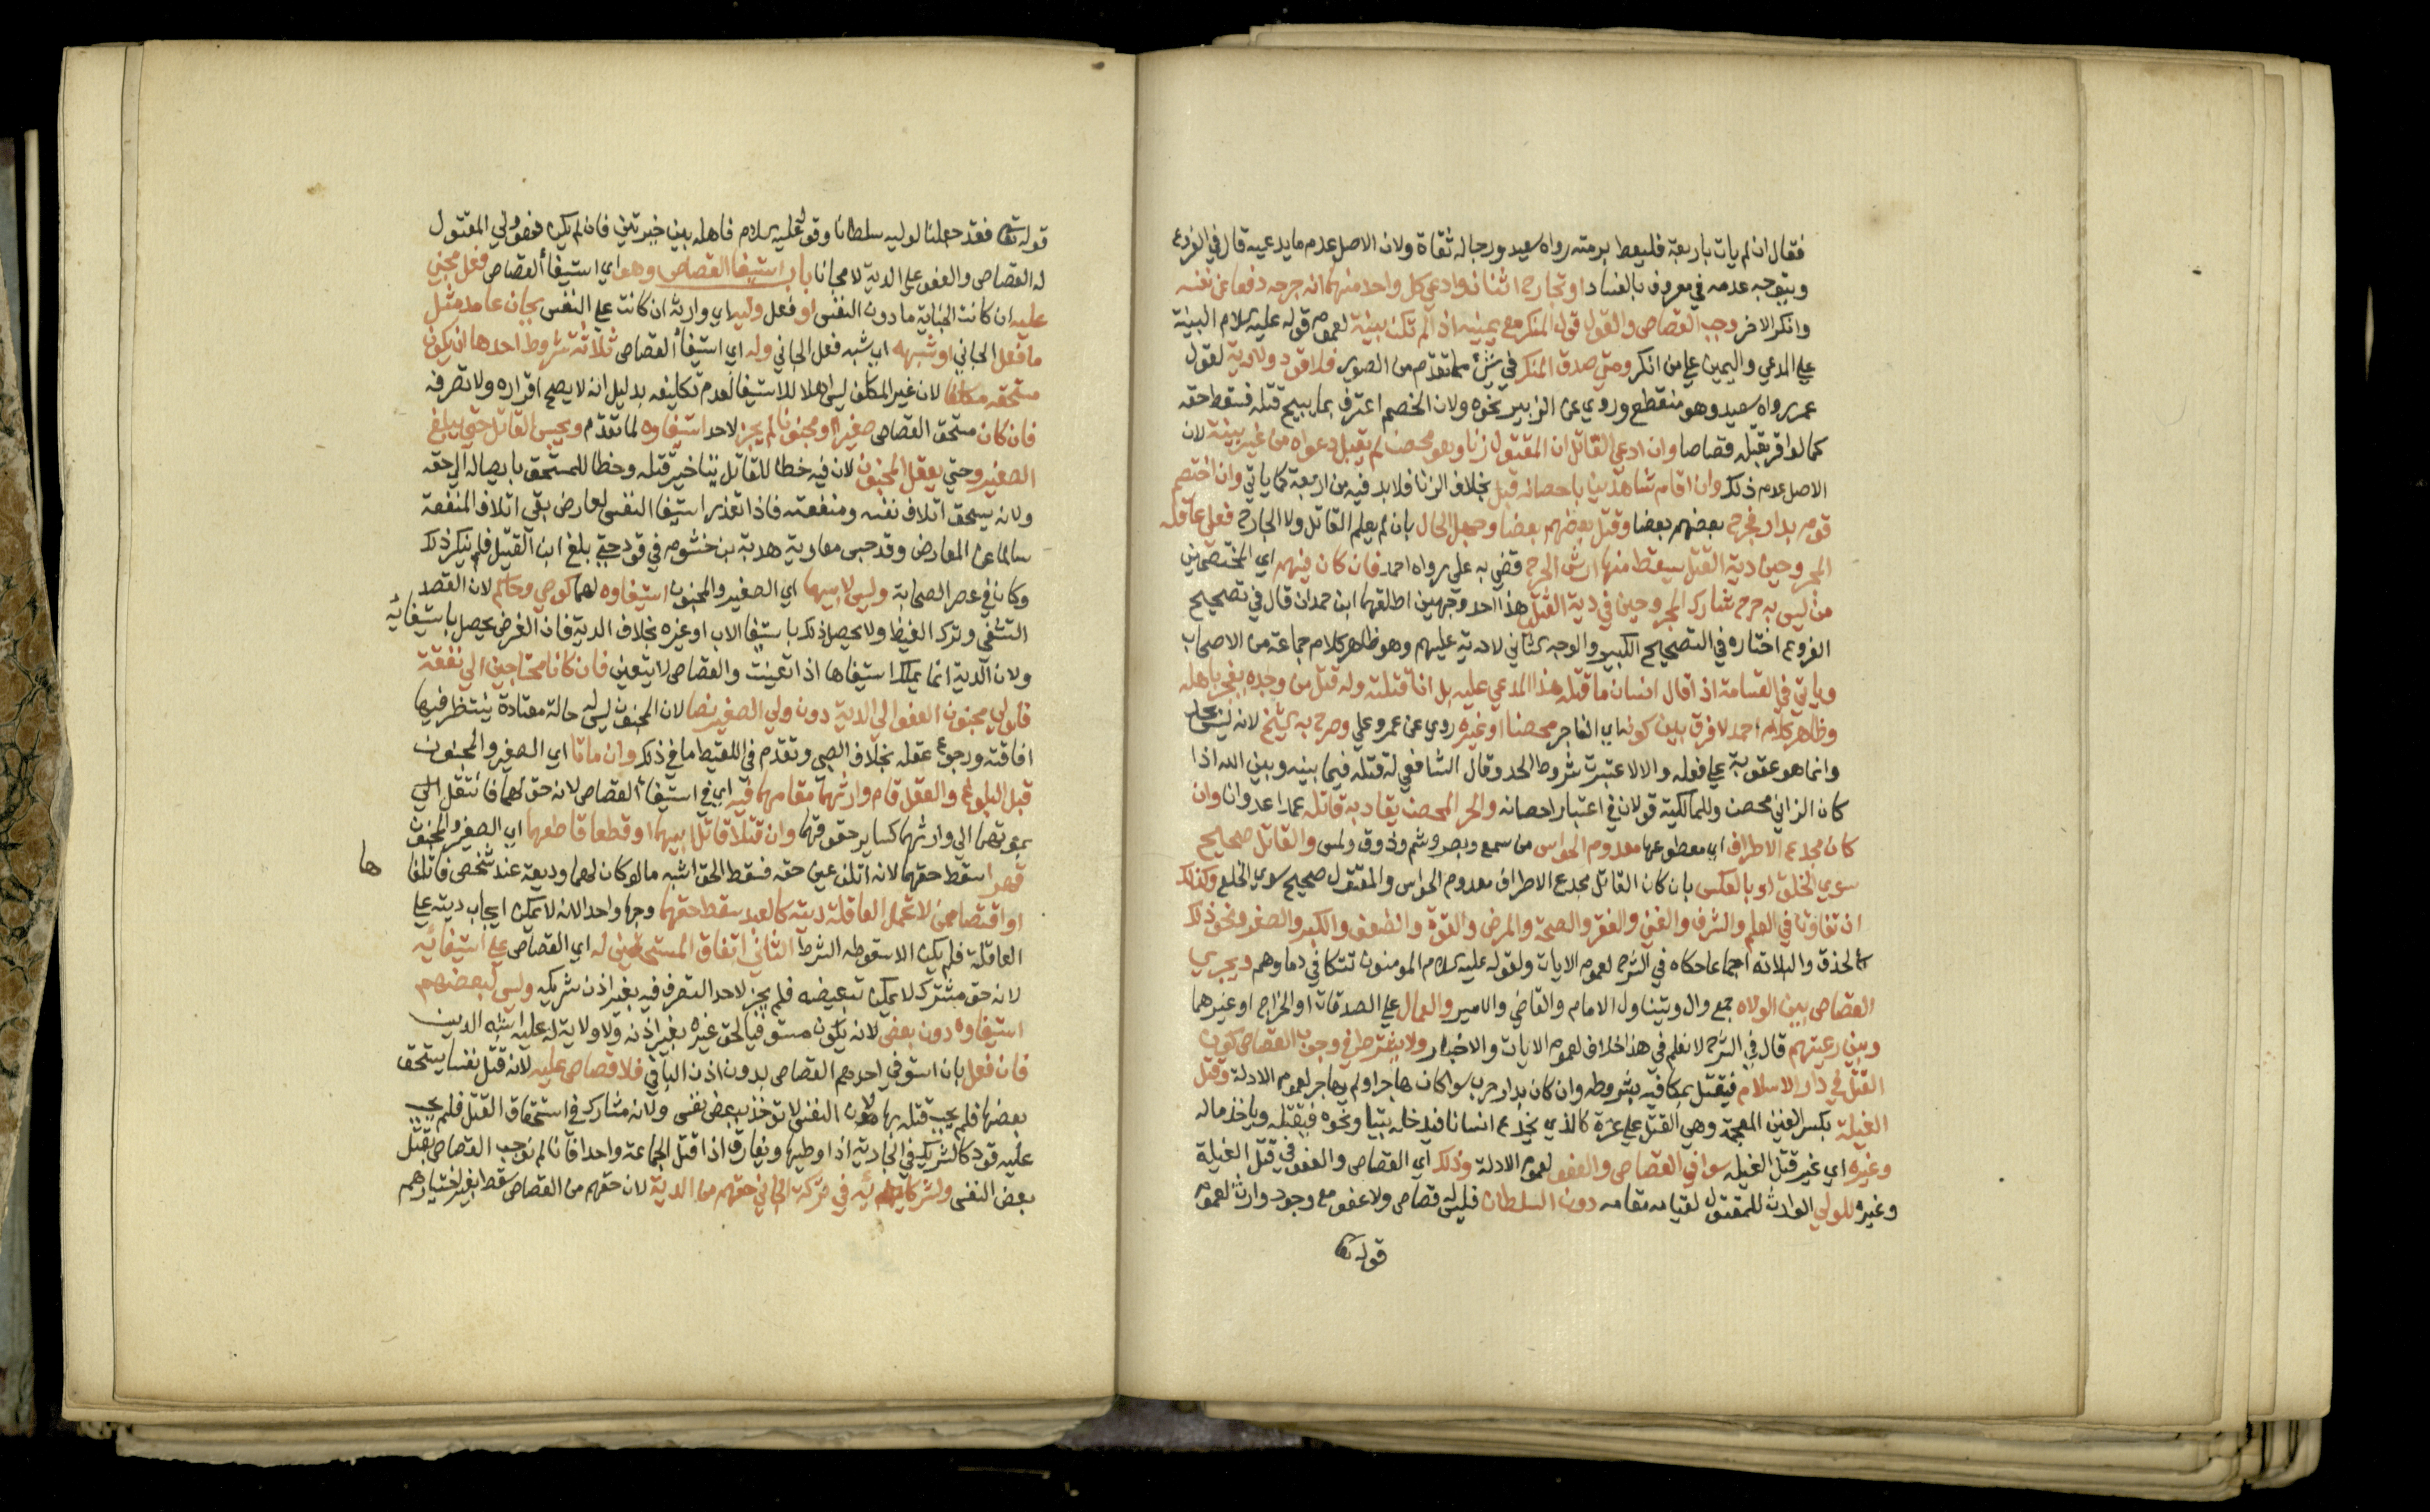 فقال ان لم يات باربعة فليعط برمته رواه سعيد ورجاله ثقاة ولان الاصل عدم ما يدعيه قال في الفروع
ويتوجه عدمه في معروف بالفساد او تجارح اثنان وادعي كل واحد منهما انه جرحه دفعا عن نفسه
وانكر الاخر وجب القصاص والقول قول المنكر مع يمينه اذا لم تكن بينة لعموم قوله عليه السلام البينة
علي المدعي واليمين علي من انكر ومتي صدق المنكر في شئ مما تقدم من الصور فلا قود ولا دية لقول
عمر رواه سعيد وهو منقطع وروي عن الزبير نحوه ولان الخصم اعترف بما يبيح قتله فسقط حقه
كما لو اقر بقتله قصاصا وان ادعي القاتل ان المقتول زنا وهو محصن لم يقبل دعواه من غير بينة لان
الاصل عدم ذلك وان اقام شاهدين باحصانه قبل بخلاف الزنا فلا بد فيه من اربعة كما ياتي وان اختصم
قوم بدار فجرح بعضهم بعضا وقتل بعضهم بعضا وجهل الحال بان لم يعلم القاتل ولا الجارح فعلي عاقلة
المجروحين دية القتل يسقط منها ارش الجرح قضي به علي رواه احمد فان كان فيهم اي المختصمين
من ليس به جرح شارك المجروحين في دية القتل هذا احد وجهين اطلقهما ابن حمدان قال في تصحيح
الفروع اختاره في التصحيح الكبير والوجه الثاني لا دية عليهم وهو ظاهر كلام جماعة من الاصحاب
وياتي في القسامة اذا قال انسان ما قتله هذا المدعي عليه بل انا قتلته وله قتل من وجده يفجر باهله
وظاهر كلام احمد لا فرق بين كونه اي الفاجر محصنا او غيره روي عن عمر وعلي وصرح به الشيخ لانه ليس بحد
وانما هو عقوبة علي فعله والا لاعتبرت شروط الحد وقال الشافعي له قتله فيما بينه وبين الله اذا
كان الزاني محصن وللمالكية قولان في اعتبار احصانه والحر المحصن يقاد به قاتله عمدا عدوانا وان
كان مجدع الاطراف اي مقطوعها معدوم الحواس من سمع وبصر وشم وذوق ولمس والقاتل صحيح
سوي الخلق او بالعكس بان كان القاتل مجدع الاطراف معدوم الحواس والمقتول صحيح سوي الخلق وكذلك
ان تفاوتا في العلم والشرف والغني والفقر والصحة والمرض والقوة والضعف والكبر والصغر ونحو ذلك
كالحذق والبلاتة اجماعا حكاه في الشرح لعموم الايات ولقوله عليه السلام المومنون تتكافي دماوهم ويجري
القصاص بين الولاة جمع وال ويتناول الامام والقاضي والامير والعمال علي الصدقات او الخراج او غيرهما
وبين رعيتهم قال في الشرح لا نعلم في هذا خلاف لعموم الايات والاخبار ولا يشترط في وجوب القصاص كون
القتل في دار الاسلام فيقتل بمكافيه بشروطه وان كان بدار حرب سوا كان هاجر او لم يهاجر لعموم الادلة وقتل
الغيلة بكسر الغين المعجمة وهي القتل علي غرة كالذي يخدع انسانا فيدخله بيتا ونحوه فيقتله وياخذ ماله
وغيره اي غير قتل الغيله سوا في القصاص والعفو لعموم الادلة وذلك اي القصاص والعفو في قتل الغيلة
وغيره للولي الوارث للمقتول لقيامه مقامه دون السلطان فليس له قصاص ولا عفو مع وجود وارث لعموم
قوله تعا
قوله تعا فقد جعلنا لوليه سلطانا وقوله عليه السلام فاهله بين خيرتين فان لم يكن فهو ولي المقتول
له القصاص والعفو علي الدية لا مجانا باب استيفا القصاص وهو اي استيفأ القصاص فعل مجني
عليه ان كانت الجناية ما دون النفس او فعل وليه اي وارثه ان كانت علي النفس بجان عامد مثل
ما فعل الجاني او شبهه اي شبه فعل الجاني وله اي استيفأ القصاص ثلاثة شروط احدها ان يكون
مستحقه مكلفا لان غير المكلف ليس اهلا للاستيفا لعدم تكليفه بدليل انه لا يصح اقراره ولا تصرفه
فان كان مستحق القصاص صغيرا او مجنونا لم يجز لاحد استيفاوه لما تقدم ويحبس القاتل حتي يبلغ
الصغير وحتي يعقل المجنون لان فيه خطا للقاتل بتاخير قتله وخطا للمستحق بايصاله الي حقه
ولانه يستحق اتلاف نفسه ومنفعته فاذا تعذر استيفا النفس لعارض بقي اتلاف المنفعة
سالما عن المعارض وقد حبس معاوية هدبة بن خشوم في قود حتي بلغ ابن القتيل فلم ينكر ذلك
وكان في عصر الصحابة وليس لابيهما اي الصغير والمجنون استيفاوه لهما كوصي وحاكم لان القصد
التشفي وترك الغيظ ولا يحصل ذلك باستيفا الاب او غيره بخلاف الدية فان الغرض يحصل باستيفائه
ولان الدية انما يملك استيفاها اذا تعينت والقصاص لا يتعين فان كانا محتاجين الي نفقة
فلولي مجنون العفو الي الدية دون ولي الصغير نصا لان المجنون ليس له حالة معتادة ينتظر فيها
افاقته ورجوع عقله بخلاف الصبي وتقدم في اللقيط ما في ذلك وان ماتا اي الصغير والمجنون
قبل البلوغ والعقل قام وارثهما مقامهما فيه اي في استيفأ القصاص لانه حق لهما فانتقل الي
بموتهما الي وارثهما كساير حقوقهما وان قتلا قاتل ابيهما او قطعا قاطعهما اي الصغير والمجنون
قهرا سقط حقهما لانه اتلف عين حقه فسقط الحق اشبه ما لو كان لهما وديعة عند شخص فاتلفا
ها
او اقتصا ممن لا تحمل العاقلة ديته كالعبد سقط حقهما وجها واحدا لانه لا يمكن ايجاب ديته علي
العاقلة فلم يكن الا سقوطه الشرط الثاني اتفاق المستحقين له اي القصاص علي استيفائه
لانه حق مشترك لا يمكن تبعيضه فلم يجز لاحد التصرف فيه بغير اذن شريكه وليس لبعضهم
استيفاوه دون بعض لانه يكون مستوفيا لحق غيره بغير اذنه ولا ولاية له عليه اشبه الدين
فان فعل بان استوفي احدهم القصاص بدون اذن الباقي فلا قصاص عليه لانه قتل نفسا يستحق
بعضها فلم يجب قتله بها لان النفس لا توخذ ببعض نفس ولانه مشارك في استحقاق القتل فلم يجب
عليه قود كالشريك في الجارية اذا وطيها ويفارق اذا قتل الجماعة واحدا فانا لم نوجب القصاص بقتل
بعض النفس ولشركايه في تركة الجاني حقهم من الدية لان حقهم من القصاص سقط بغير اختيارهم